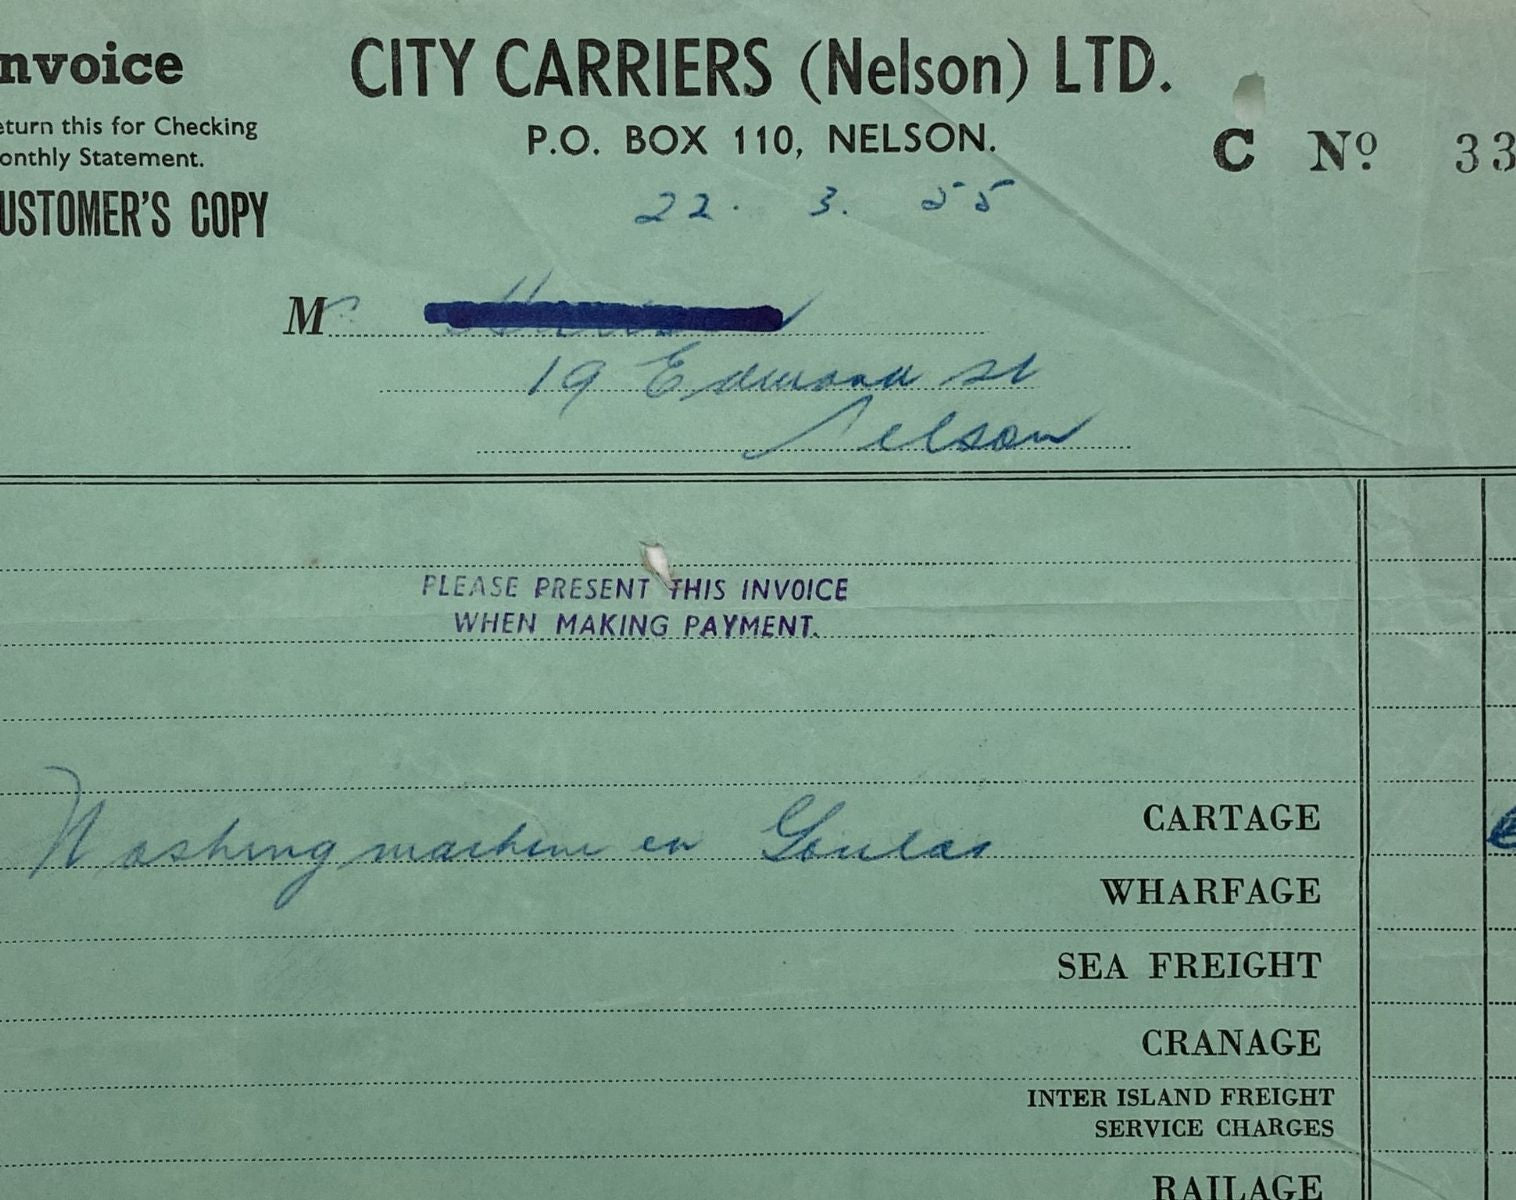 nvoice
CITY CARRIERS (Nelson) LTD.
eturn this for Checking
P.O. BOX 110, NELSON.
onthly Statement.
C No 33
USTOMER'S COPY
22. 3. 55
Mr
19 Edmond st
Nelson
PLEASE PRESENT THIS INVOICE
WHEN MAKING PAYMENT.
Washing machine ex
CARTAGE
WHARFAGE
SEA FREIGHT
CRANAGE
INTER ISLAND FREIGHT
SERVICE CHARGES
RAILAGE